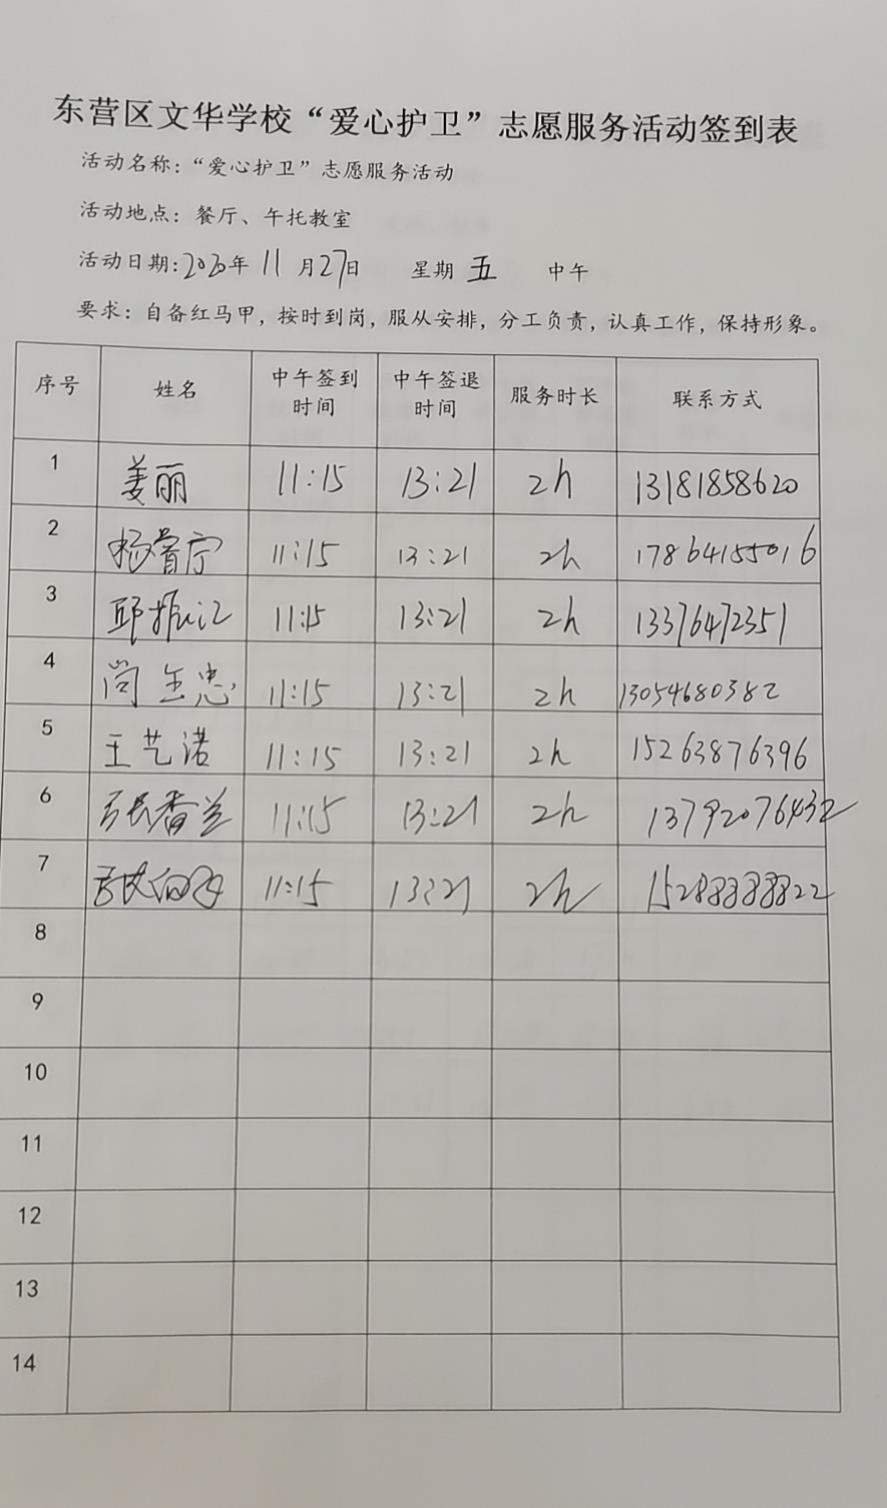 东营区文华学校“爱心护卫”志愿服务活动签到表
活动名称：“爱心护卫”志愿服务活动
活动地点：餐厅、午托教室
活动日期：2020年 11 月27日 星期 五 中午
要求：自备红马甲，按时到岗，服从安排，分工负责，认真工作，保持形象。
序号 姓名 中午签到时间 中午签退时间 服务时长 联系方式
1 姜丽 11:15 13:21 2h 13181858620
2 11:15 13:21 2h 17864155016
3 11:15 13:21 2h 13376472351
4 11:15 13:21 2h 13054680382
5 王艺诺 11:15 13:21 2h 15263876396
6 11:15 13:21 2h 13792076432
7 11:15 13:21 2h 15288888822
8
9
10
11
12
13
14